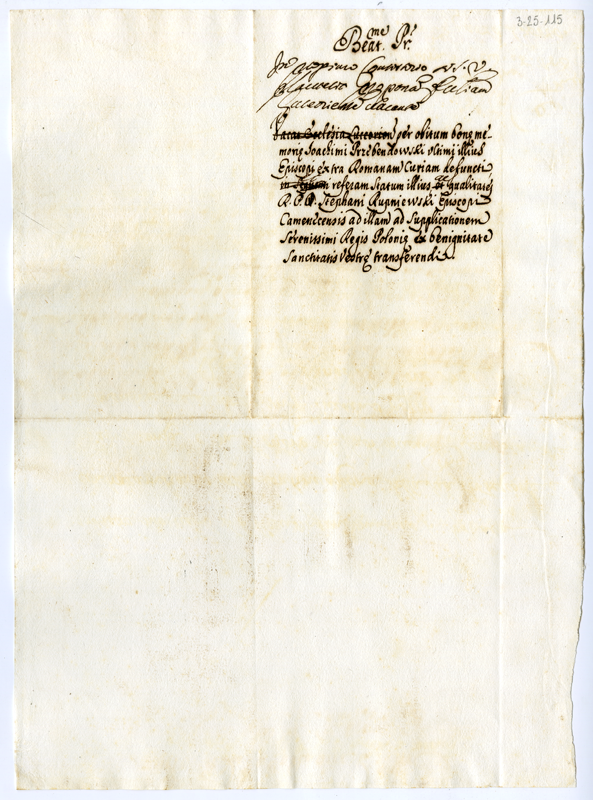 3-25-115
Beat.me Pr.
In proximo Consistorio
placuerit
vacante
Vacat Ecclesia Luceorien per obitum bonę me-
morię Ioachimi Przebendowski ultimi illius
Episcopi extra Romanam Curiam defuncti
in referam statum illius, et qualitates
R. P. D. Stephani Rupniewski Episcopi
Camenecensis ad illam ad supplicationem
Serenissimi Regis Polonię ex benignitate
Sanctitatis Vestrę transferendi.